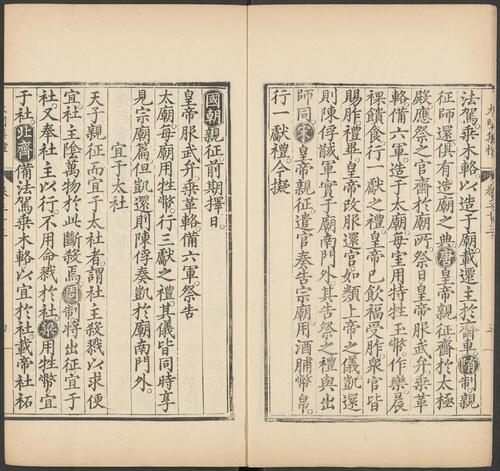 法駕乘木輅以造于廟載遷主於齋車隋制親
征師還俱有造廟之典唐皇帝親征齋於太極
殿應祭之官齋於廟所祭日皇帝服武弁乘革
輅備六軍造于太廟每室用特牲玉幣作樂晨
祼饋食行一獻之禮皇帝已飲福受胙衆官皆
賜胙禮畢皇帝改服還宮如類上帝之儀凱還
則陳俘馘軍實于廟南門外其告祭之禮與出
師同宋皇帝親征遣官奏告宗廟用酒脯幣帛
行一獻禮今擬
國朝親征前期擇日
皇帝服武弁乘革輅備六軍祭告
太廟每廟用牲幣行三獻之禮其儀皆同時享
見宗廟篇但凱還則陳俘奏凱於廟南門外
宜于太社
天子親征而宜于太社者謂社主殺戮以求便
宜社主陰萬物於此斷殺焉周制將出征宜于
社又奉社主以行不用命戮於社梁用牲幣宜
于社北齊備法駕乘木輅以宜於社載帝社祏